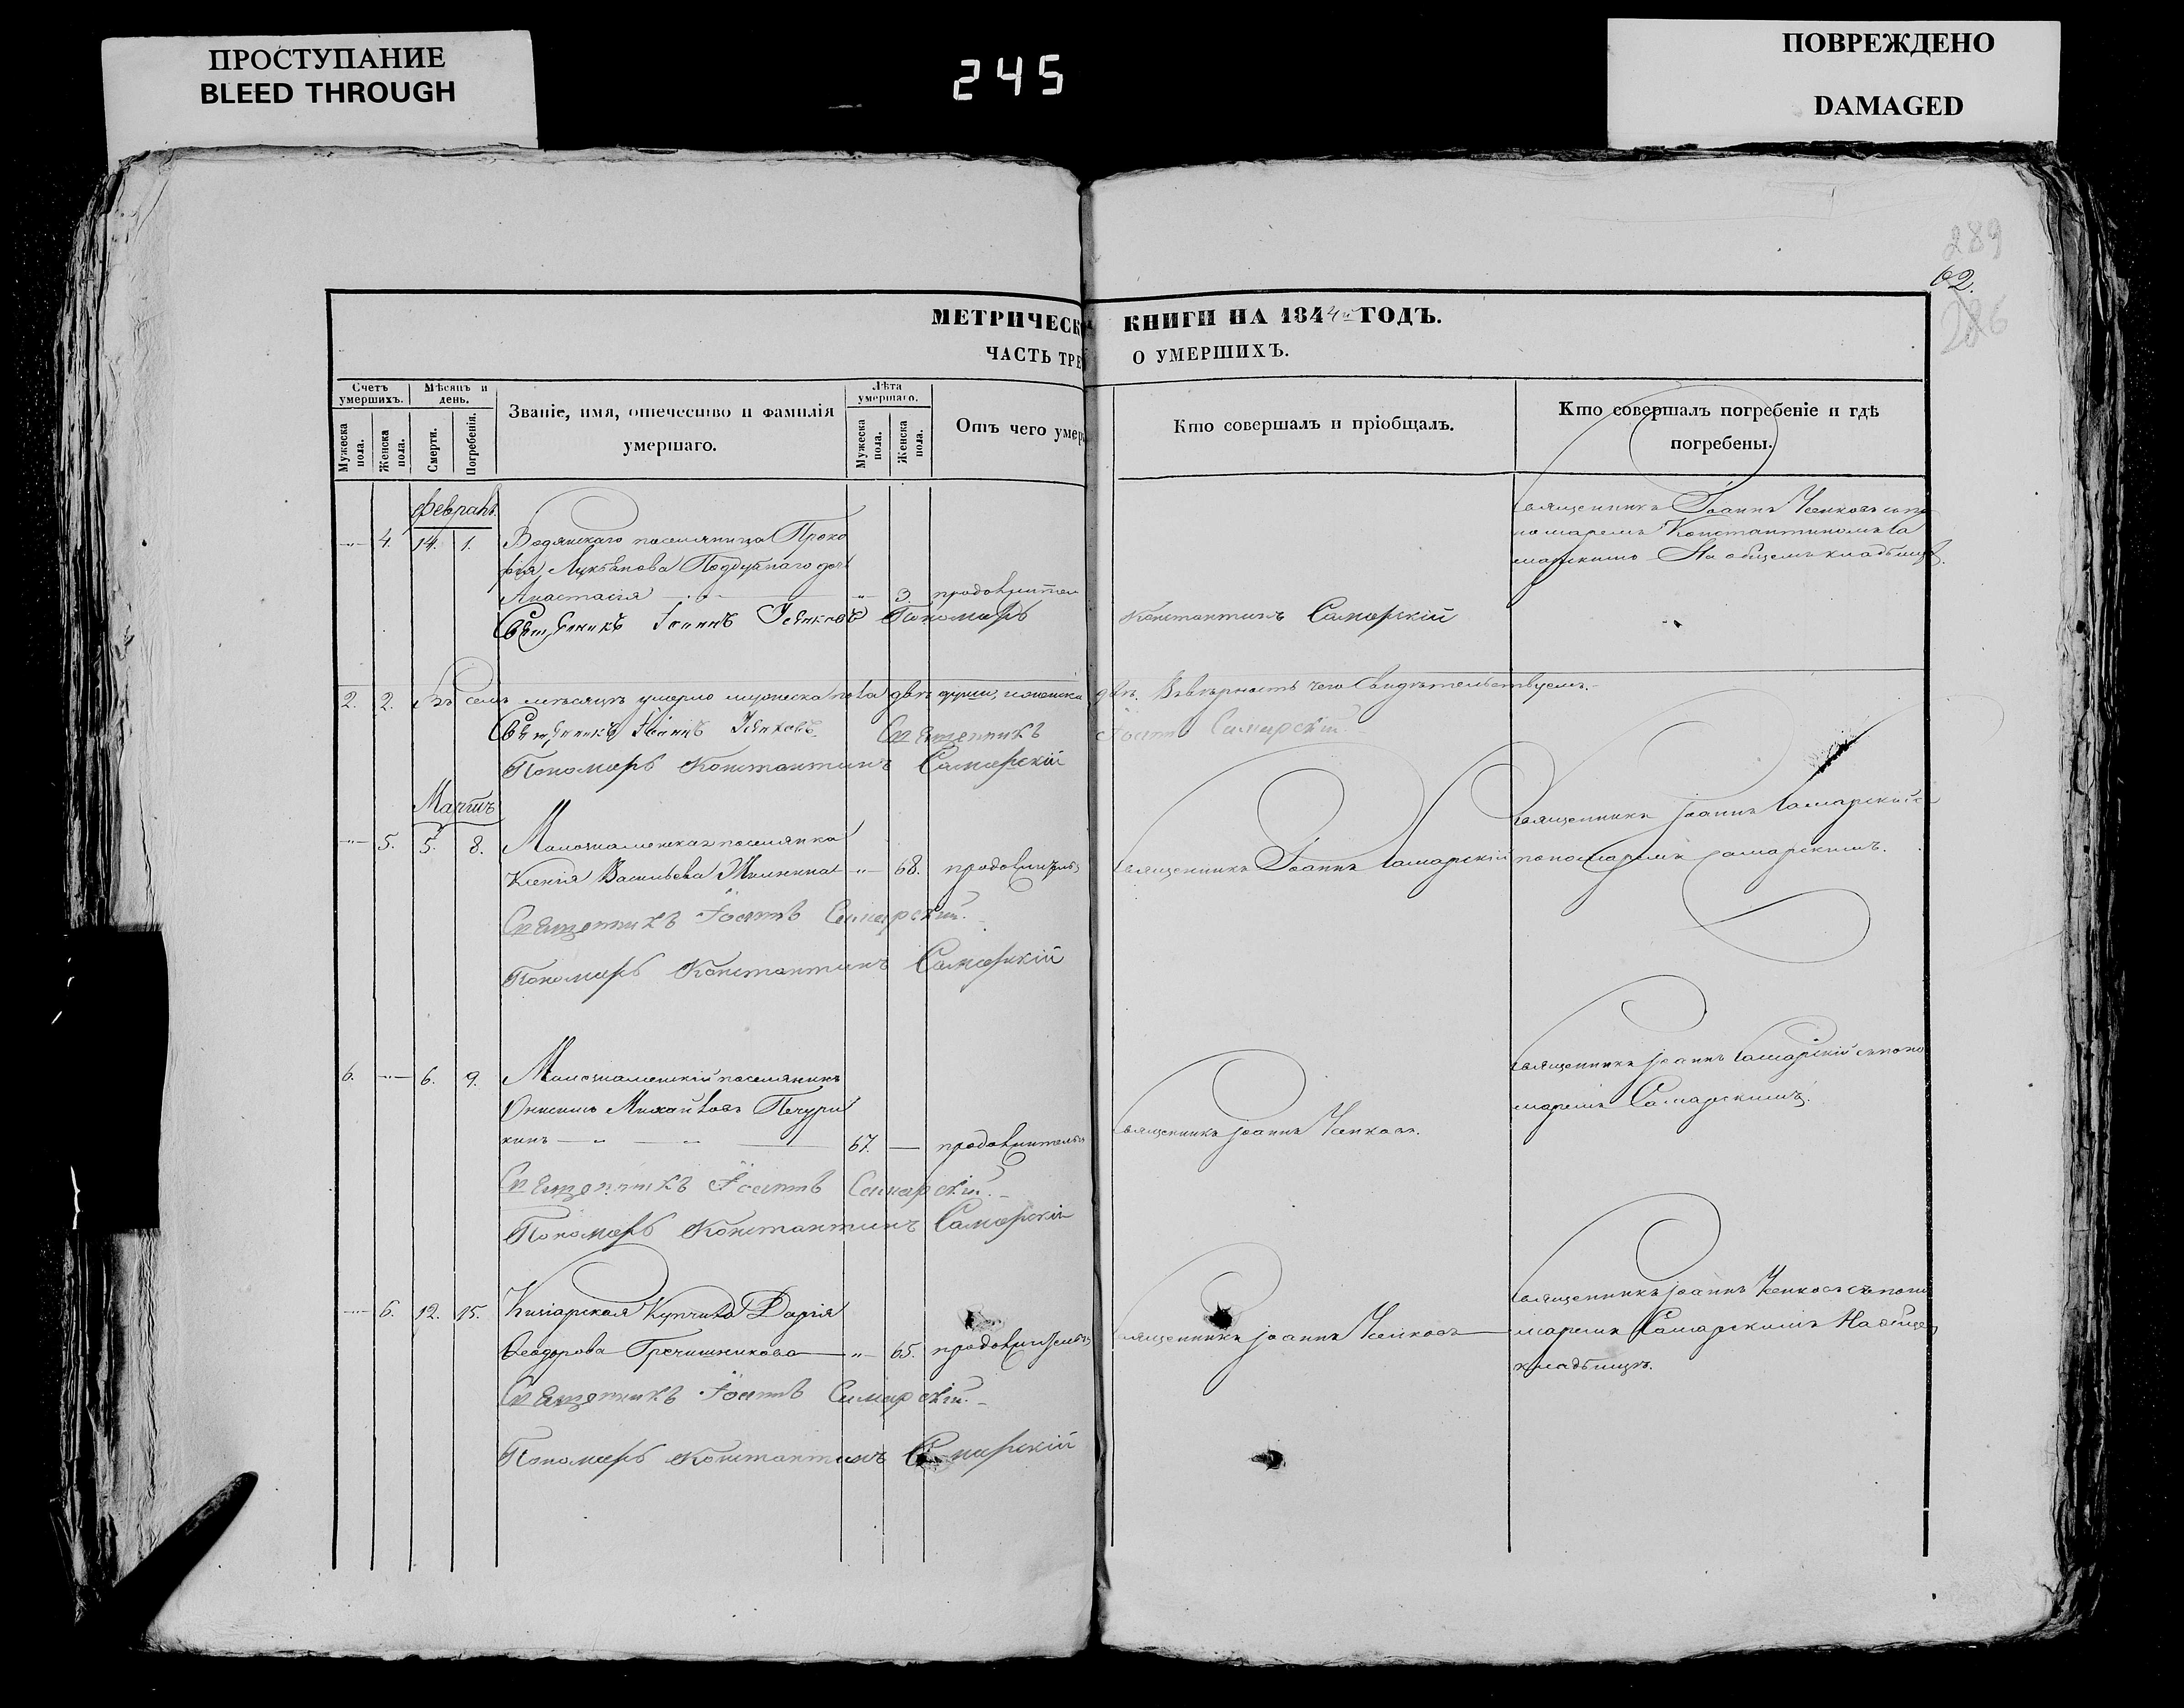 ПРОСТУПАНИЕ
BLEED THROUGH
245
ПОВРЕЖДЕНО
DAMAGED
289
62.
286
МЕТРИЧЕСК КНИГИ НА 1844й ГОДЪ.
ЧАСТЬ ТРЕ О УМЕРШИХЪ.
Счетъ умершихъ.
Мужеска пола.
Женска пола.
Мѣсяцъ и день.
Смерти.
Погребенія.
Званіе, имя, отечество и фамилія умершаго.
Лѣта умершаго.
Мужеска пола.
Женска пола.
Отъ чего умер
Кто совершалъ и пріобщалъ.
Кто совершалъ погребеніе и гдѣ погребены.
февраль
4. 14. 1. Водянскаго поселянина Проко
фія Лукьянова Поддубнаго дочь
Анастасія 3.
Священникъ Іоаннъ Пономарь Константинъ Самарскій
Священникъ Іоаннъ
номаремъ Константиномъ Са
марскимъ На общемъ кладбищѣ.
2. 2. Въ семъ мѣсяцѣ умерло мужеска пола двѣ души, и женска двѣ. Въ вѣрность чего Свидѣтельствуемъ.
Священникъ Іоаннъ Священникъ Іоаннъ Самарскій
Пономарь Константинъ Самарскій
Мартъ
5. 5. 8. поселянка
Ксенія Васильева 68. Священникъ Іоаннъ Самарскій
Священникъ Іоаннъ Самарскій
пономаремъ Самарскимъ.
Священникъ Іоаннъ Самарскій.
Пономарь Константинъ Самарскій
6. 6. 9. поселянинъ
Михайловъ
кинъ 67. Священникъ Іоаннъ
Священникъ Іоаннъ Самарскій съ поно
маремъ Самарскимъ.
Священникъ Іоаннъ Самарскій.
Пономарь Константинъ Самарскій
6. 12. 15. Дарія
Ѳеодорова Гречишникова 65. Священникъ Іоаннъ
Священникъ Іоаннъ съ поно
маремъ Самарскимъ На общемъ
кладбищѣ.
Священникъ Іоаннъ Самарскій.
Пономарь Константинъ Самарскій